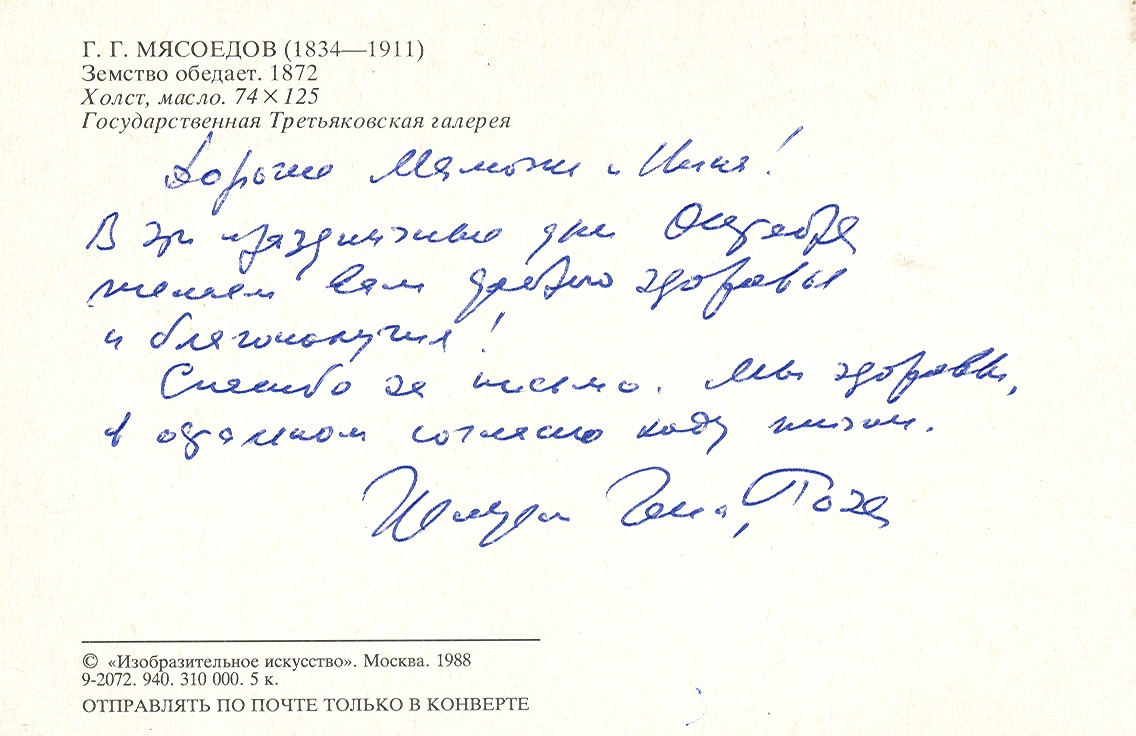 Г. Г. МЯСОЕДОВ (1834—1911)
Земство обедает. 1872
Холст, масло. 74×125
Государственная Третьяковская галерея
Дорогие и Нина!
В эти праздничные дни Октября
желаем Вам доброго здоровья
и благополучия!
Спасибо за письмо. Мы здоровы,
в остальном согласно ходу жизни.
Гена,
© «Изобразительное искусство». Москва. 1988
9-2072. 940. 310 000. 5 к.
ОТПРАВЛЯТЬ ПО ПОЧТЕ ТОЛЬКО В КОНВЕРТЕ